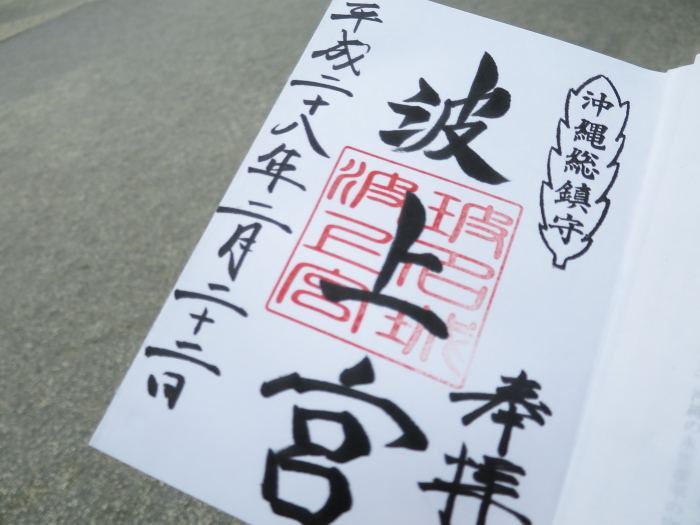 沖縄総鎮守
奉拝
波上宮
平成二十八年二月二十二日